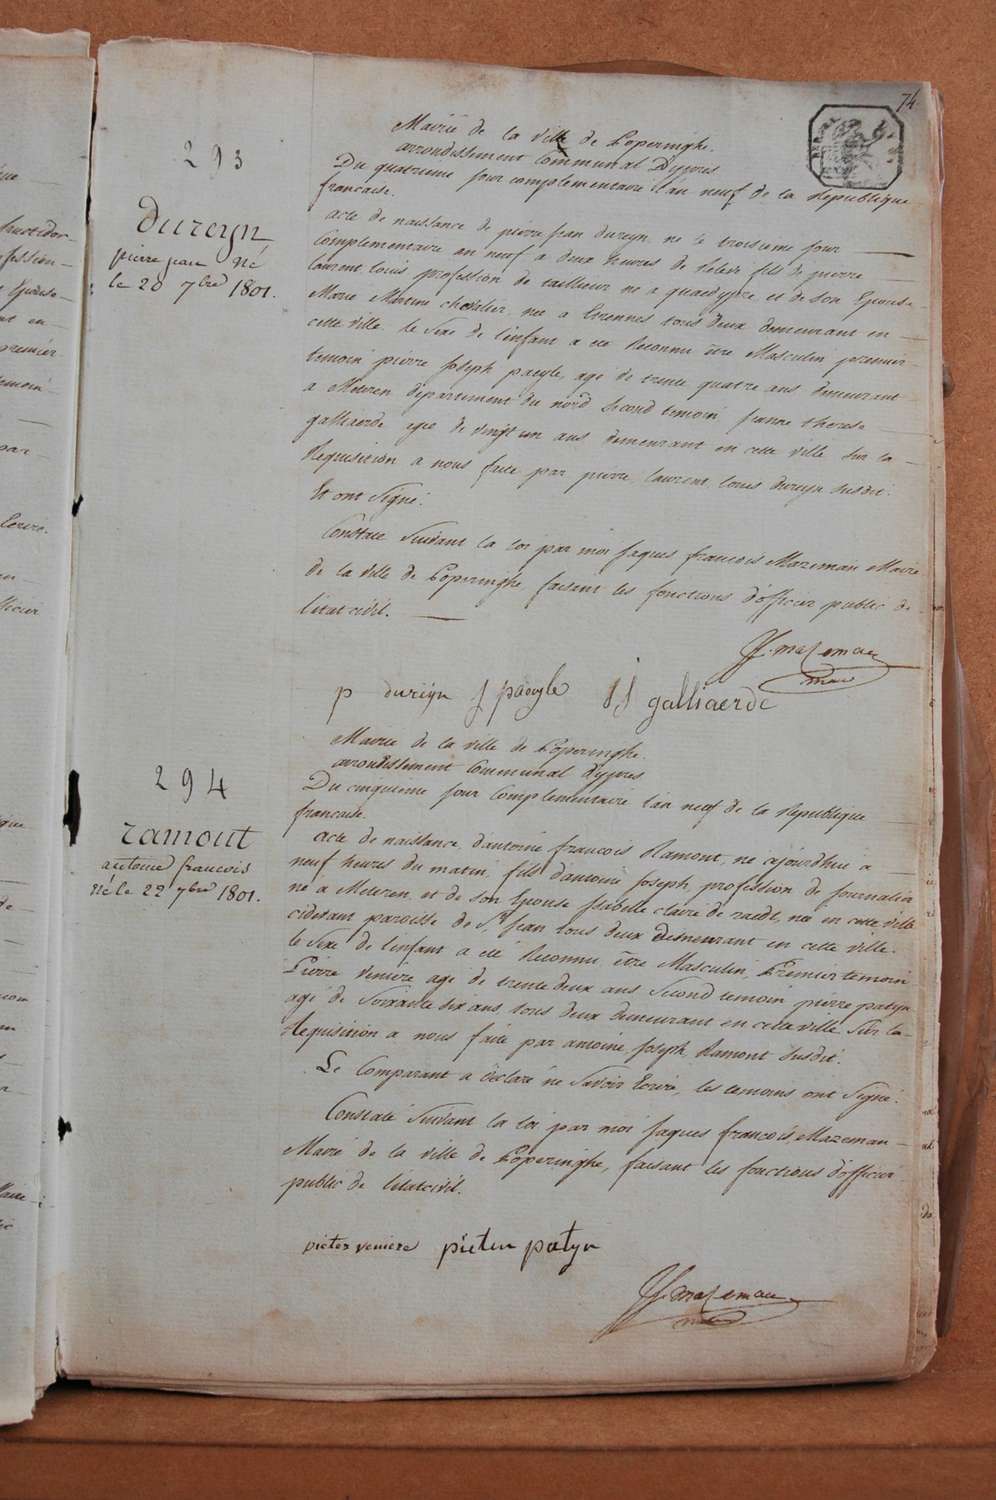 74
293
dureyn
pierre jean né
le 20 7bre 1801.
Mairie de la ville de Poperinghe.
arrondissement Communal D'ypres
Du quatrieme jour complementaire l'an neuf de la Republique
francaise.
acte de naissance de pierre jean dureyn, ne le troisieme jour
Complementaire an neuf a deux heures de Releve fils de pierre
laurent louis profession de tailleur ne a quaedypre et de son Epouse
Marie Martine chevalier, nee a Etrennes tous deux demeurant en
cette ville. le sexe de l'enfant a ete Reconnu être Masculin premier
temoin pierre joseph paeyle, age de trente quatre ans demeurant
a Meteren departement du nord Second temoin jeanne therese
galliaerde age de vingt un ans demeurant en cette ville sur la
Requisition a nous faite par pierre, laurent, louis dureyn susdit.
Et ont Signé.
Constaté Suivant la loi par moi jaques francois Mazeman Maire
de la ville de Poperinghe, faisant les fonctions d'officier public de
l'état civil.
JF. mazeman
maire
p dureyn j paeyle JJ galliaerde
294
ramout
antoine francois
né le 22 7bre 1801.
Mairie de la ville de Poperinghe.
arrondissement Communal d'ypres
Du cinquieme jour Complementaire l'an neuf de la Republique
francaise.
acte de naissance, d'antoine francois Ramont, ne aujourdhui a
neuf heures du matin, fils d'antoine joseph, profession de journalier
né a Meteren, et de son Epouse isabelle claire de raedt, née en cette ville
cidevant paroisse de St. jean tous deux demeurant en cette ville.
le Sexe de l'enfant a eté Reconnu être Masculin, Premier temoin
Pierre Veniere agé de trente deux ans Second temoin pierre patyn
agé de Soixante six ans, tous deux demeurant en cette ville, Sur la
Requisition a nous faite par antoine, joseph, Ramont Susdit.
Le Comparant a déclaré ne Savoir Ecrire, les temoins ont Signé.
Constaté Suivant la loi par moi jaques francois Mazeman
Maire de la ville de Poperinghe, faisant les fonctions d'officier
public de l'état civil.
pieter veniere pieter patyn
JF. mazeman
maire